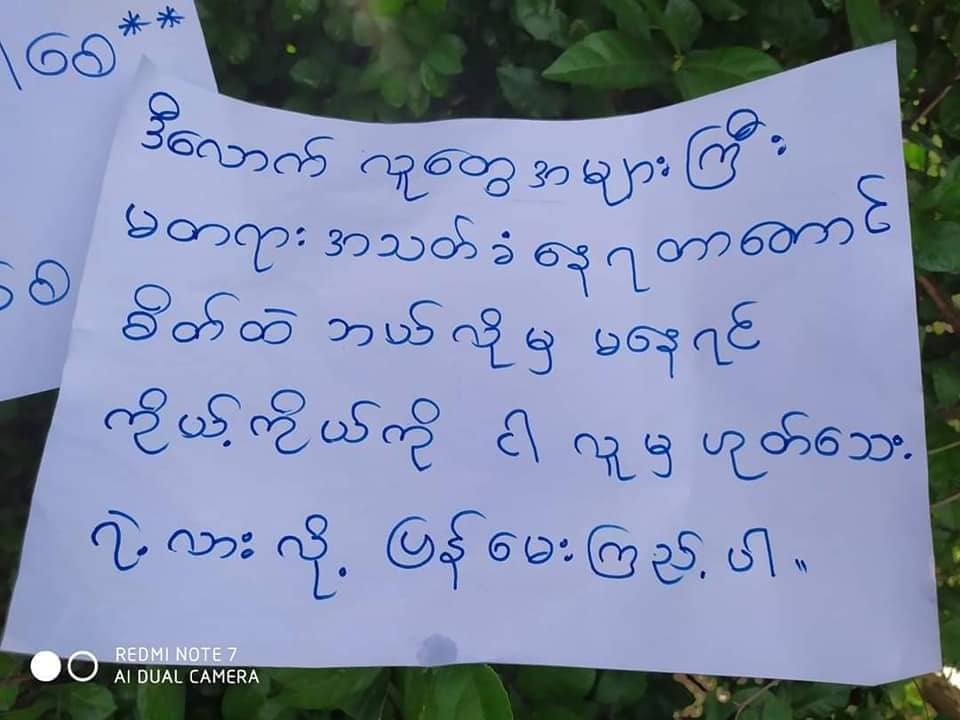 ါစေ**
စေ
ဒီလောက် လူတွေအများကြီး
မတရားအသတ်ခံနေရတာတောင်
စိတ်ထဲ ဘယ်လိုမှ မနေရင်
ကိုယ့်ကိုယ်ကို ငါ လူမှ ဟုတ်သေး
ရဲ့လားလို့ ပြန်မေးကြည့်ပါ။
REDMI NOTE 7
AI DUAL CAMERA